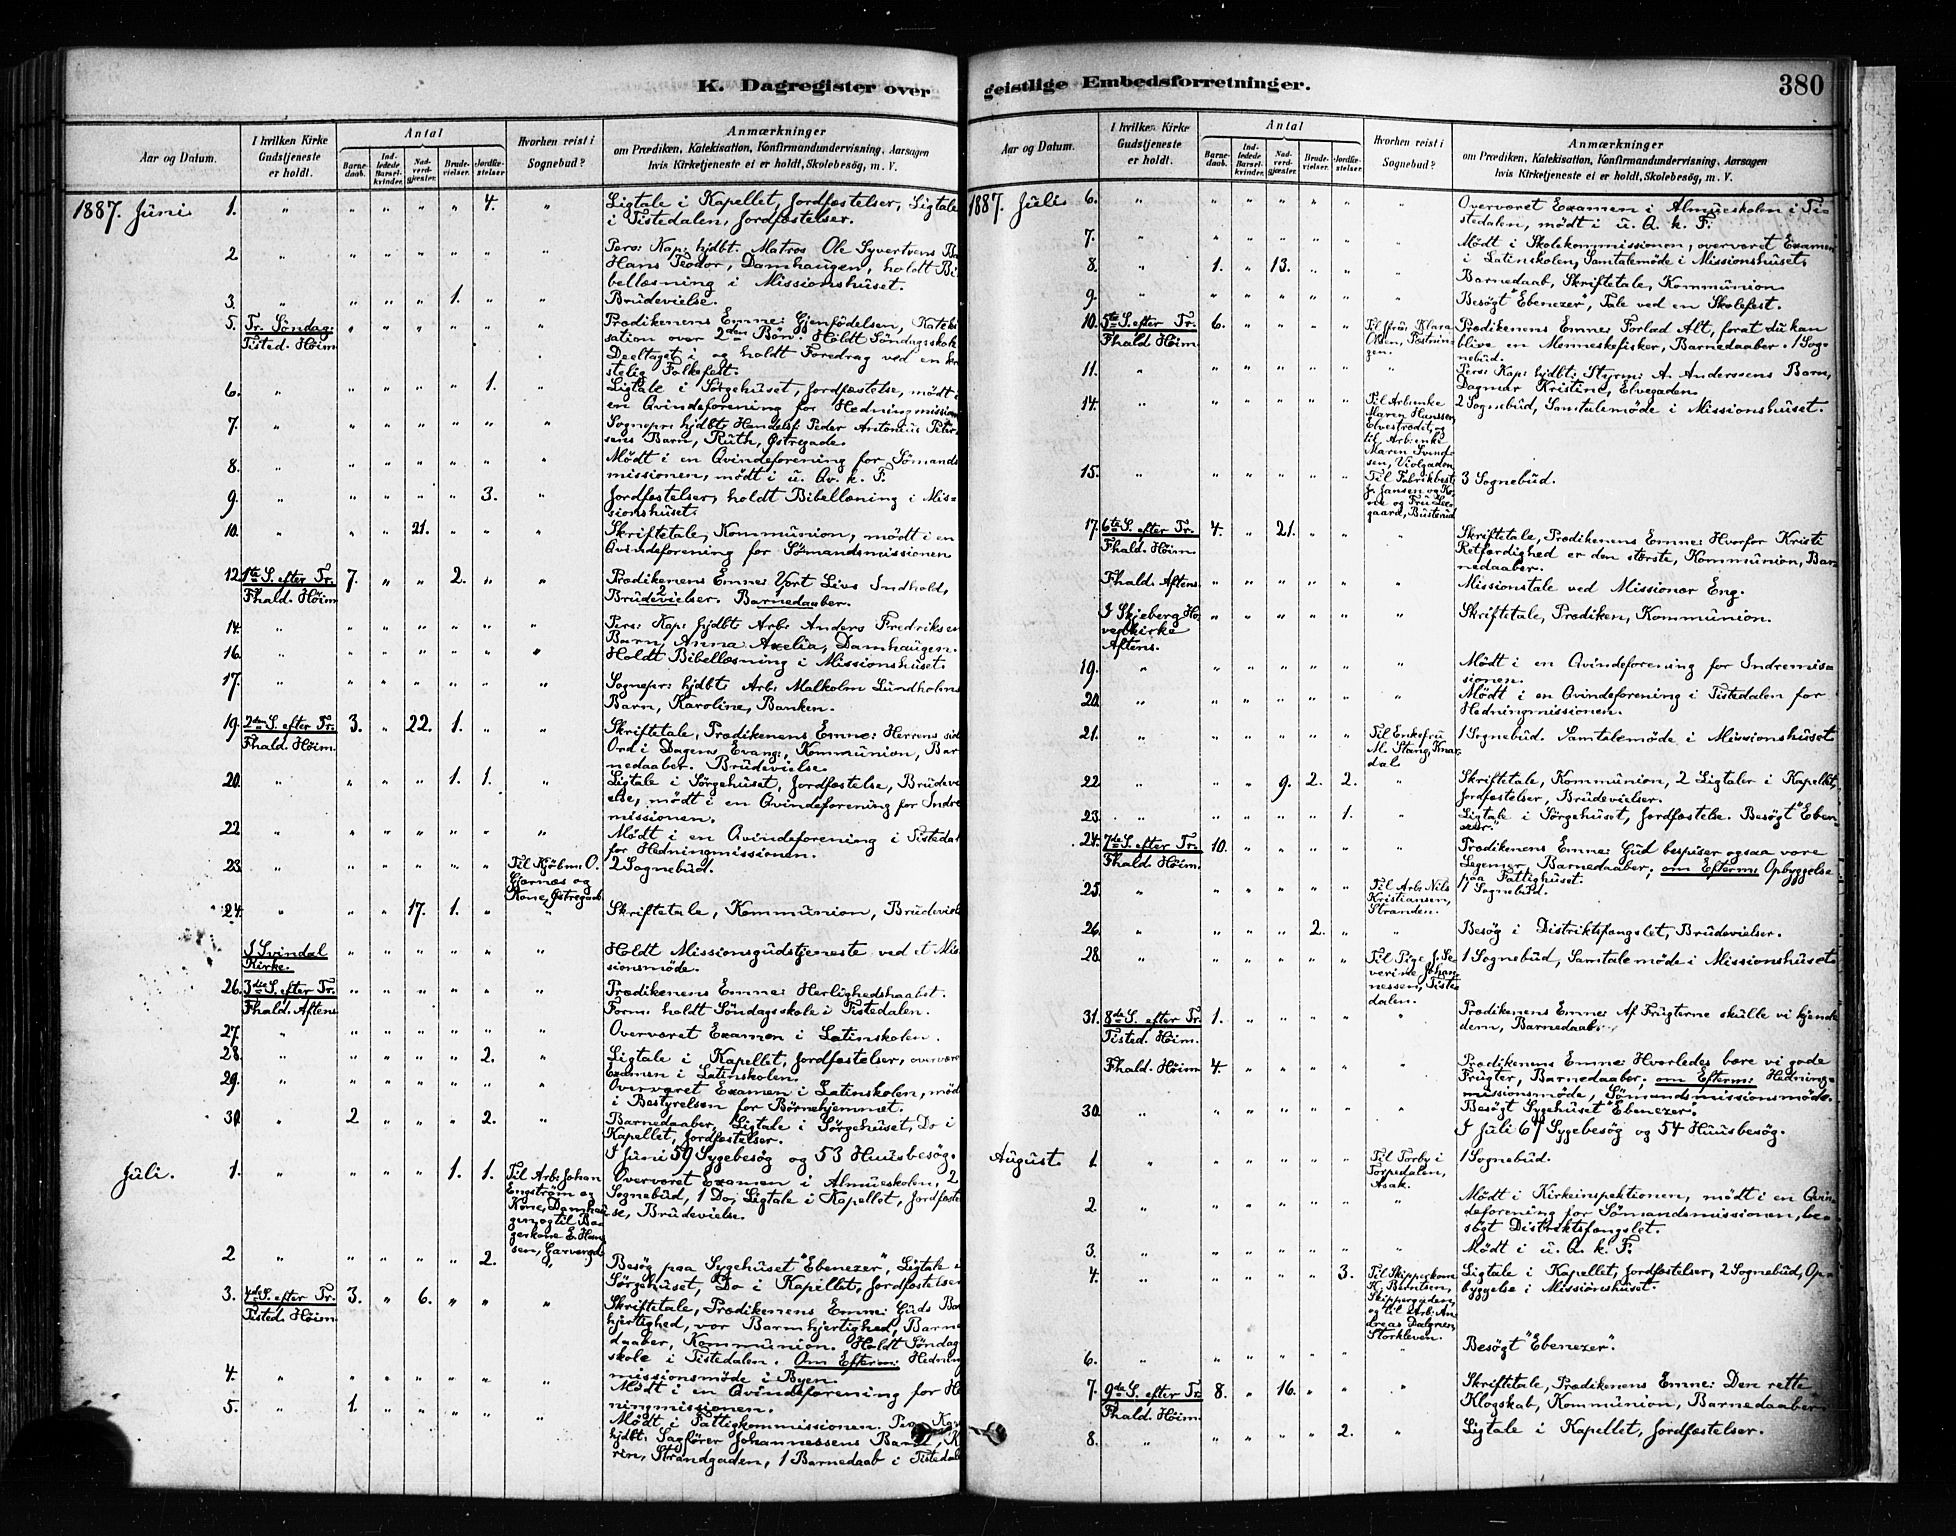 K. Dagregister over
Aar og Datum.
I hvilken Kirke
Gudstjeneste
er holdt.
Antal
Barne-
daab.
Ind-
ledede
Barsel-
kvinder.
Nad-
verd-
gjæster.
Brude-
vielser.
Jordfæ-
stelser.
Hvorhen reist i
Sognebud?
Anmærkninger
om Prædiken, Katekisation, Konfirmandundervisning, Aarsagen
hvis Kirketjeneste ei er holdt, Skolebesøg, m. V.
1887. Juni 1. " " " " " 4. " Ligtale i Kapellet, Jordfæstelser, Ligtale
i Tistedalen, Jordfæstelser.
2. " " " " " " " Pers: Kap: hjdbt. Matros Ole Syvertsens
Hans Teodor, Damhaugen, holdt Bi
bellæsning i Missionshuset.
3. " " " " 1. " " Brudevielse.
5. Tr. Søndag. " " " " " " Prædikenens Emne: Gjenfødelsen, Kateki
Tisted. Høim. sation over 2den Børn. Holdt Søndagsskole
Deeltaget i og holdt Foredrag ved en
stelig Folkefest.
6. " " " " " 1. " Ligtale i Sørgehuset, Jordfæstelse, mødt i
en Qvindeforening for Hedningmission
7. " " " " " " " Sognepr: hjdbt. Handelsf. Peder Antonius Peter
sens Barn, Ruth, Østregade.
8. " " " " " " " Mødt i en Qvindeforening for Sømands
missionen, mødt i u. Qv. k. F.
9. " " " " " 3. " Jordfæstelser, holdt Bibellæsning i Mis-
sionshuset.
10. " " " 21. " " " Skriftetale, Kommunion, mødt i en
Qvindeforening for Sømandsmissionen
12. 1ste S. efter Tr. 7. " " 2. " " Prædikenens Emne: Vort Livs Indhold,
Fhald. Høim. 2 Brudevielser. Barnedaaber.
14. " " " " " " " Pers: Kap: hjdbt. Arb: Anders Fredriksen
Barn, Anna Axelia, Damhaugen.
16. " " " " " " " Holdt Bibellæsning i Missionshuset.
17. " " " " " " " Sognepr: hjdbt. Arb: Malkolm Lundholms
Barn, Karoline, Banken.
19. 2den S. efter Tr. 3. " 22. 1. " " Skriftetale, Prædikenens Emne: Herrens
Fhald. Høim. Ord i Dagens Evang:, Kommunion, Bar
nedaaber. Brudevielse.
20. " " " " 1. 1. " Ligtale i Sørgehuset, Jordfæstelse, Brudevi
else, mødt i en Qvindeforening for Indre
missionen.
22. " " " " " " " Mødt i en Qvindeforening i Tistedal
for Hedningmissionen.
23. " " " " " " Til Kjøbm: O. 2 Sognebud.
Gjernæs og
Kone, Østregade.
24. " " " 17. 1. " " Skriftetale, Kommunion, Brudeviel
I Svindal " " " " " " Holdt Missionsgudstjeneste ved et Mis
Kirke. sionsmøde.
26. 3die S. efter Tr. " " " " " " Prædikenens Emne: Herlighedshaabet.
Fhald. Aftens. Form: holdt Søndagsskole i Tistedalen.
27. " " " " " " " Overværet Examen i Latinskolen.
28. " " " " " 2. " Ligtale i Kapellet, Jordfæstelser, overvære
Examen i Latinskolen.
29. " " " " " " " Overværet Examen i Latinskolen, mød
i Bestyrelsen for Børnehjemmet.
30. " 2 " " " 2. " Barnedaaber, Ligtale i Sørgehuset, Do i
Kapellet, Jordfæstelser.
I Juni 59 Sygebesøg og 53 Huusbesøg.
Juli. 1. " " " " 1. 1. Til Arb: Johan Overværet Examen i Almueskolen, 2
Engstrøm og Sognebud, 1 Do, Ligtale i Kapellet, Jordfæstel
Kone, Damhau se, Brudevielse.
gen og til Ba
gerkone E. Han
sen, Garvergd.
2 " " " " " 2. " Besøg paa Sygehuset "Ebenezer", Ligtale i
Sørgehuset, Do i Kapellet, Jordfæstelser
3. 4de S. efter Tr. 3. " 6. " " " Skriftetale, Prædikenens Emne: Guds Barm
Tisted. Høim. hjertighed, vor Barmhjertighed, Barne
daaber, Kommunion. Holdt Søndag
skole i Tistedalen. Om Efterm: Hedning
missionsmøde i Byen.
4. " " " " " " " Mødt i en Qvindeforening for He
ningmissionen.
5. " 1. " " " " " Mødt i Fattigkommissionen. Pers: Kap:
hjdbt: Sagfører Johannessens Barn, K
rin, Strandgaden, 1 Barnedaab i Tistedal
geistlige Embedsforretninger.
380
Aar og Datum.
I hvilken Kirke
Gudstjeneste
er holdt.
Antal
Barne-
daab.
Ind-
ledede
Barsel-
kvinder.
Nad-
verd-
gjæster.
Brude-
vielser.
Jordfæ-
stelser.
Hvorhen reist i
Sognebud?
Anmærkninger
om Prædiken, Katekisation, Konfirmandundervisning, Aarsagen
hvis Kirketjeneste ei er holdt, Skolebesøg, m. V.
1887. Juli 6. " " " " " " " Overværet Examen i Almueskolen i Ti-
stedalen, mødt i u. Q. k. F.
7. " " " " " " " Mødt i Skolekommissionen, overværet Examen
i Latinskolen, Samtalemøde i Missionshuset.
8. " 1. " 13. " " " Barnedaab, Skriftetale, Kommunion.
9. " " " " " " " Besøgt "Ebenezer", Tale ved en Skolefest.
10. 5te S. efter Tr. 6. " " " " Til Fru Klara Prædikenens Emne: Forlad Alt, forat du kan
Fhald. Høim. Olsen, Fæstnin- blive en Menneskefisker, Barnedaaber. 1 Sog-
gen. nebud.
11. " " " " " " " Pers: Kap: hjdbt: Styrm: A. Anderssens Barn,
Dagmar Kristine, Elvegaden.
14. " " " " " " Til Arb:enke 2 Sognebud, Samtalemøde i Missionshuset.
Maren Hanssen,
Elvestrædet, og
til Arb:enke
Maren Svend-
sen, Violgaden.
15. " " " " " " Til Fabrikbest: 3 Sognebud.
Jr. Jansen og Ko-
ne og Fru Lee-
gaard, Busterud.
17. 6te S. efter Tr. 4. " 21. " " " Skriftetale, Prædikenens Emne: Hvorfor Kristi
Fhald. Høim. Retfærdighed er den største, Kommunion, Bar-
nedaaber.
Fhald. Aftens. " " " " " " Missionstale ved Missionær Eng.
I Skjeberg Ho- " " " " " " Skriftetale, Prædiken, Kommunion.
vedkirke
Aftens.
19. " " " " " " " Mødt i en Qvindeforening for Indremis-
sionen.
20. " " " " " " " Mødt i en Qvindeforening i Tistedalen for
Hedningmissionen.
21. " " " " " " Til Enkefru 1 Sognebud. Samtalemøde i Missionshuset
M. Stang, Knar-
dal.
22. " " " 9. 2. 2. " Skriftetale, Kommunion, 2 Ligtaler i Kapellet,
Jordfæstelser, Brudevielser.
23. " " " " " 1. " Ligtale i Sørgehuset, Jordfæstelse. Besøgt "Eben-
ezer."
24. 7de S. efter Tr. 10. " " " " " Prædikenens Emne: Gud bespiser ogsaa vore
Fhald. Høim. Legemer, Barnedaaber, om Efterm: Opbyggelse
paa Fattighuset.
25. " " " " " " Til Arb: Nils 1 Sognebud.
Kristiansen,
Stranden.
26. " " " " 2. " " Besøg i Distriktsfængslet, Brudevielser.
28. " " " " " " Til Pige J. Se- 1 Sognebud, Samtalemøde i Missionshuset
verine Johan-
nessen, Tiste-
dalen.
31. 8de S. efter Tr. 1. " " " " " Prædikenens Emne: Af Frugterne skulle vi kjende
Tisted. Høim. dem, Barnedaab.
Fhald. Høim. 4. " " " " " Prædikenens Emne: Hvorledes bære vi gode
Frugter, Barnedaaber, om Efterm: Hedning-
missionsmøde, Sømandsmissionsmøde.
30. " " " " " " " Besøgt Sygehuset "Ebenezer".
I Juli 67 Sygebesøg og 54 Huusbesøg.
August. 1. " " " " " " Til Torby i 1 Sognebud.
Torpedalen,
Asak.
2 " " " " " " " Mødt i Kirkeinspektionen, mødt i en Qvin-
deforening for Sømandsmissionen, be-
søgt Distriktsfængslet.
3. " " " " " " " Mødt i u. Q. k. F.
4. " " " " " 3. Til Skipperkone Ligtale i Kapellet, Jordfæstelser, 2 Sognebud, Op-
K. Berntsen, byggelse i Missionshuset.
Skippergaden,
og til Arb: An-
dreas Dalgren,
Storkleven.
6. " " " " " " " Besøgt "Ebenezer".
7. 9de S. efter Tr. 8. " 16. " " " Skriftetale, Prædikenens Emne: Den rette
Fhald. Høim. Klogskab, Kommunion, Barnedaaber.
8. " " " " " 2. " Ligtale i Kapellet, Jordfæstelser.